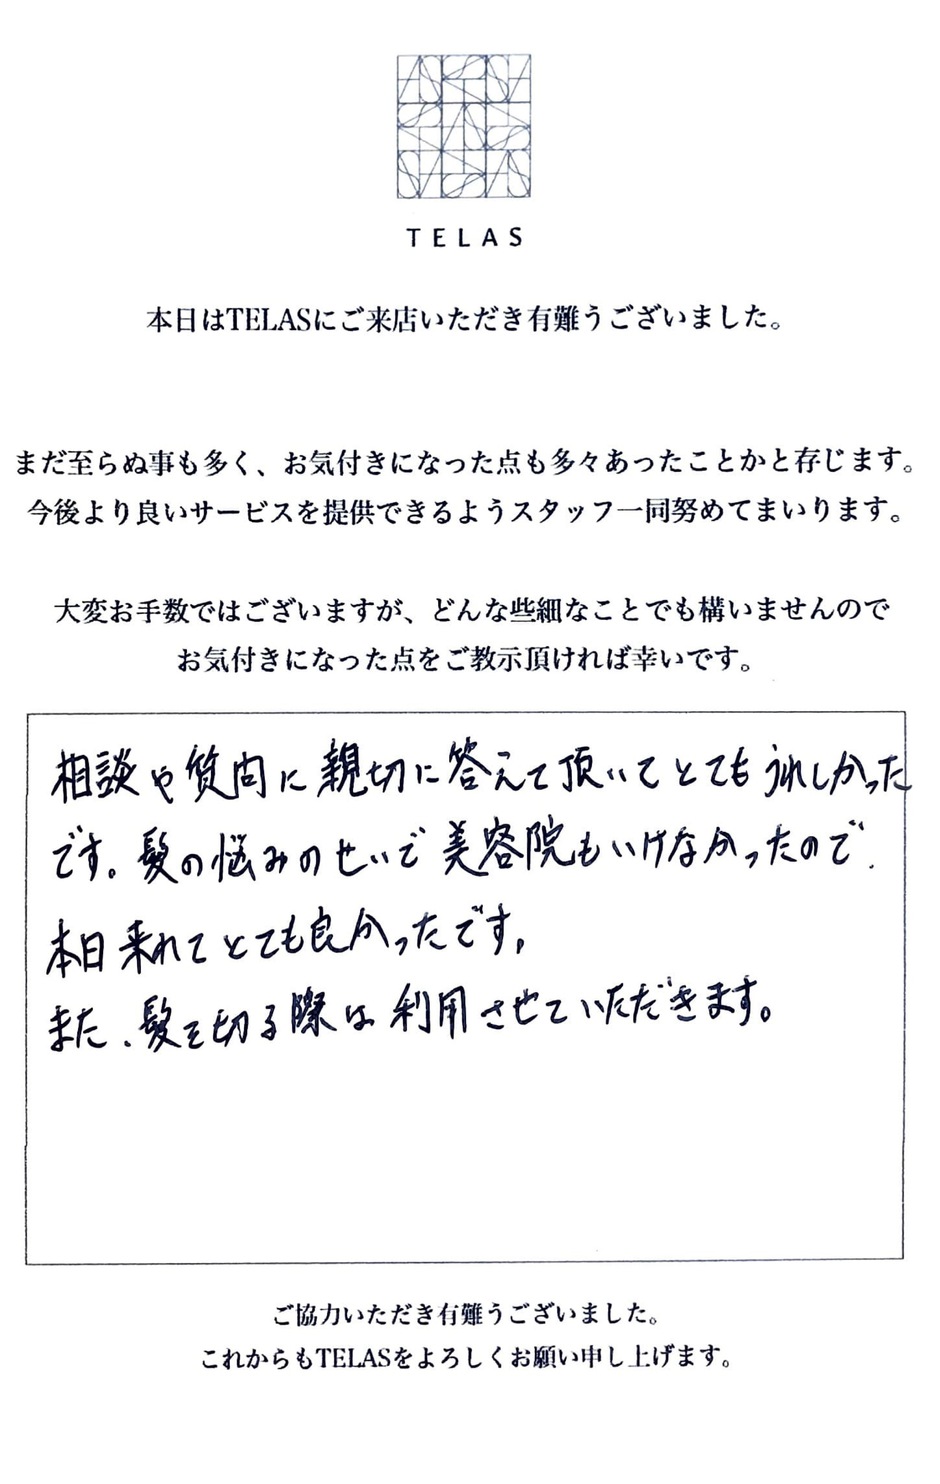 TELAS
本日はTELASにご来店いただき有難うございました。
まだ至らぬ事も多く、お気付きになった点も多々あったことかと存じます。
今後より良いサービスを提供できるようスタッフ一同努めてまいります。
大変お手数ではございますが、どんな些細なことでも構いませんので
お気付きになった点をご教示頂ければ幸いです。
相談や質問に親切に答えて頂いてとてもうれしかった
です。髪の悩みのせいで美容院もいけなかったので、
本日来れてとても良かったです。
また、髪を切る際は利用させていただきます。
ご協力いただき有難うございました。
これからもTELASをよろしくお願い申し上げます。